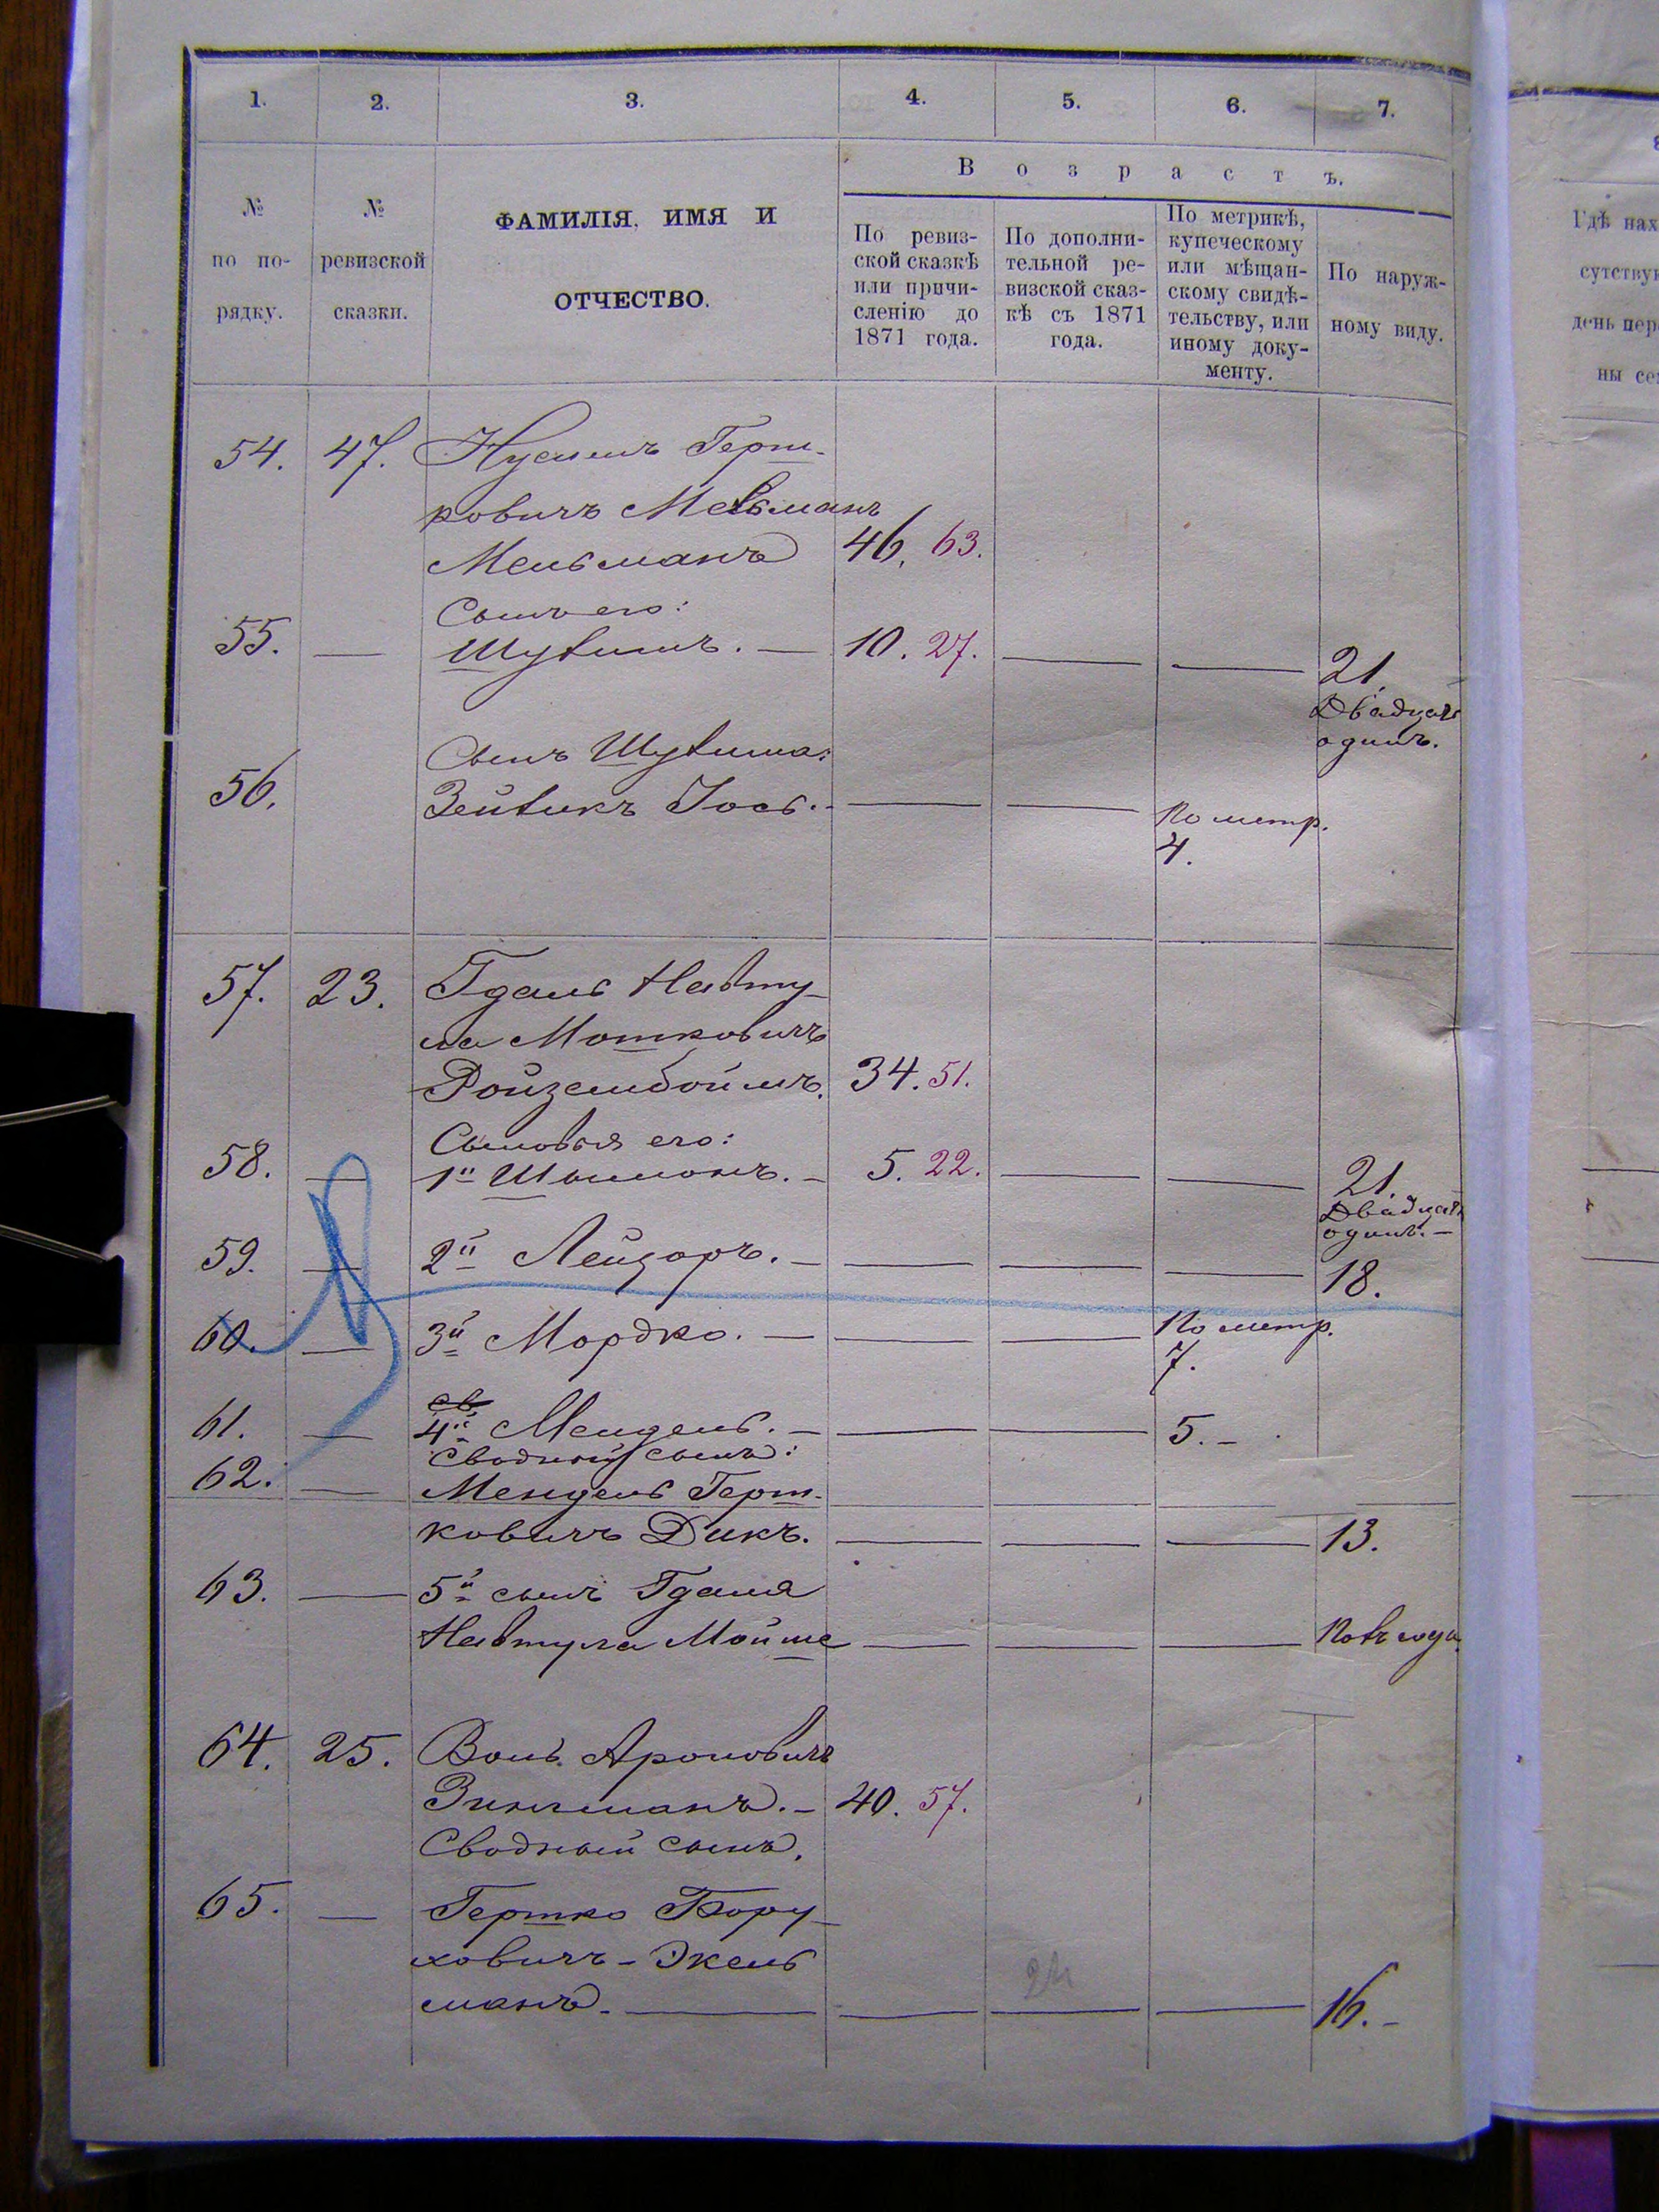 1. 2. 3. 4. 5. 6. 7.
Возрастъ.
№ по по-рядку.
№ ревизской сказки.
ФАМИЛІЯ, ИМЯ И
ОТЧЕСТВО.
По ревиз-
ской сказкѣ
или причи-
сленію до
1871 года.
По дополни-
тельной ре-
визской сказ-
кѣ съ 1871
года.
По метрикѣ,
купеческому
или мѣщан-
скому свидѣ-
тельству, или
иному доку-
менту.
По наруж-
ному виду.
Гдѣ нах
сутству
день пер
ны се
54. 47. Нусимъ Герш-
ковичъ
Мельманъ 46. 63.
Сынъ его:
55. — — 10. 27. — — 21.
Двадцать
одинъ.
Сынъ
56. Зейвикъ Іось. — — По метр.
4.
57. 23. Гдаль Нафту-
ла Мошковичъ
Ройзембоймъ. 34. 51.
Сыновья его:
58. — 1й Шимонъ. — 5. 22. — — 21.
Двадцать
одинъ. —
59. — 2й Лейзоръ. — — — — 18.
60. — 3й Мордко. — — — По метр.
7.
61. — 4й Мендель. — — — 5. —
Сводный сынъ:
62. — Мендель Герш-
ковичъ Дикъ. — — — 13.
63. — 5й сынъ Гдаля
Нафтула Мойше — — —
64. 25. Воль. Ароновичъ
Зингманъ. — 40. 57.
Сводный сынъ.
65. — Гершко Бору-
ховичъ - Экель
манъ. — — — — 16. —